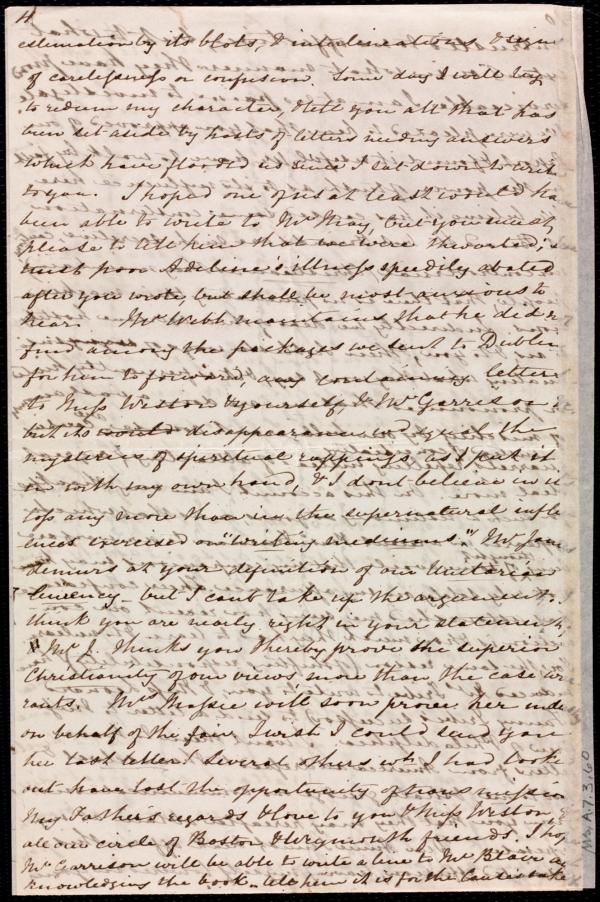 4
estimation by its blots, & interlineations, & signs
of carelessness or confusion. Some day I will try
to redeem my character, & tell you all that has
been set aside by hosts of letters needing answers
which have flooded us since I sat down to write
to you. I hoped one of us at least would ha
been able to write to Mr May, but you must
please to tell him that we were thwarted; &
trust poor Adeline's illness speedily abated
after you wrote, but shall be most anxious to
hear. Mr Webb maintains that he did n
find among the packages we sent to Dublin
for him to forward, any containing letters
to Miss Weston & yourself, & Mr Garrison
but its disappearance wd equal the
mysteries of spiritual rappings, as I put it
in with my own hand, & I dont believe in
any more than in the supernatural influ
ences exercised on "writing mediums". Mr Jam
demurs at your definition of our Unitarian
leniency - but I cant take up the argument.
think you are nearly right in your statement,
& Mr J. thinks you thereby prove the superior
Christianity of our views, more than the case war
rants. Mrs Massie will soon prove her inde
on behalf of the fair. I wish I could send you
her last letter! Several others wh I had look
out have lost the opportunity of transmission
My Father's regards & love to you & Miss Weston,
all our circle of Boston & Weymouth friends. I hop
Mr Garrison will be able to write a line to Mr Blair ac
knowledging the book - tell him it is for the Cause's sake
Ms.A.7.3.60